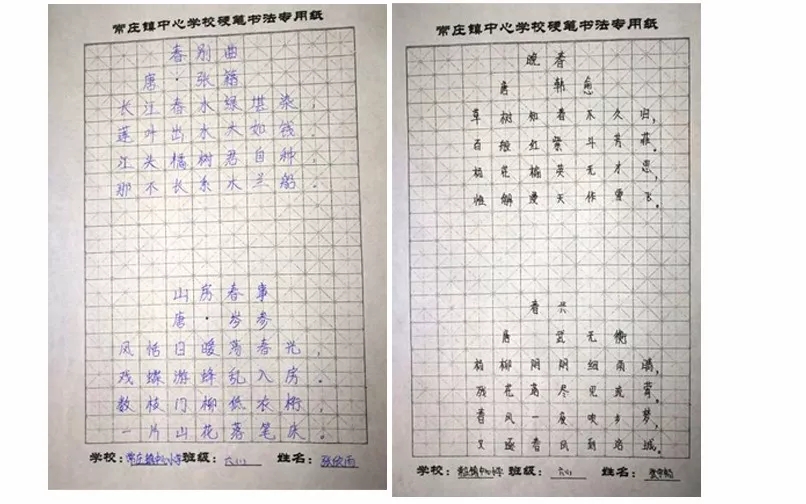 常庄镇中心学校硬笔书法专用纸
春别曲
唐·张籍
长江春水绿堪染，
莲叶出水大如钱。
江头橘树君自种，
那不长系木兰船。
山房春事
唐·岑参
风恬日暖荡春光，
戏蝶游蜂乱入房。
数枝门柳低衣桁，
一片山花落笔床。
学校：常庄镇中心小学 班级：六(1) 姓名：张欣雨
常庄镇中心学校硬笔书法专用纸
晚春
唐 韩愈
草树知春不久归，
百般红紫斗芳菲。
杨花榆英无才思，
惟解漫天作雪飞。
春兴
唐 武元衡
杨柳阴阴细雨晴，
残花落尽见流莺。
春风一夜吹乡梦，
又逐春风到洛城。
学校：常庄镇中心小学 班级：六(1) 姓名：